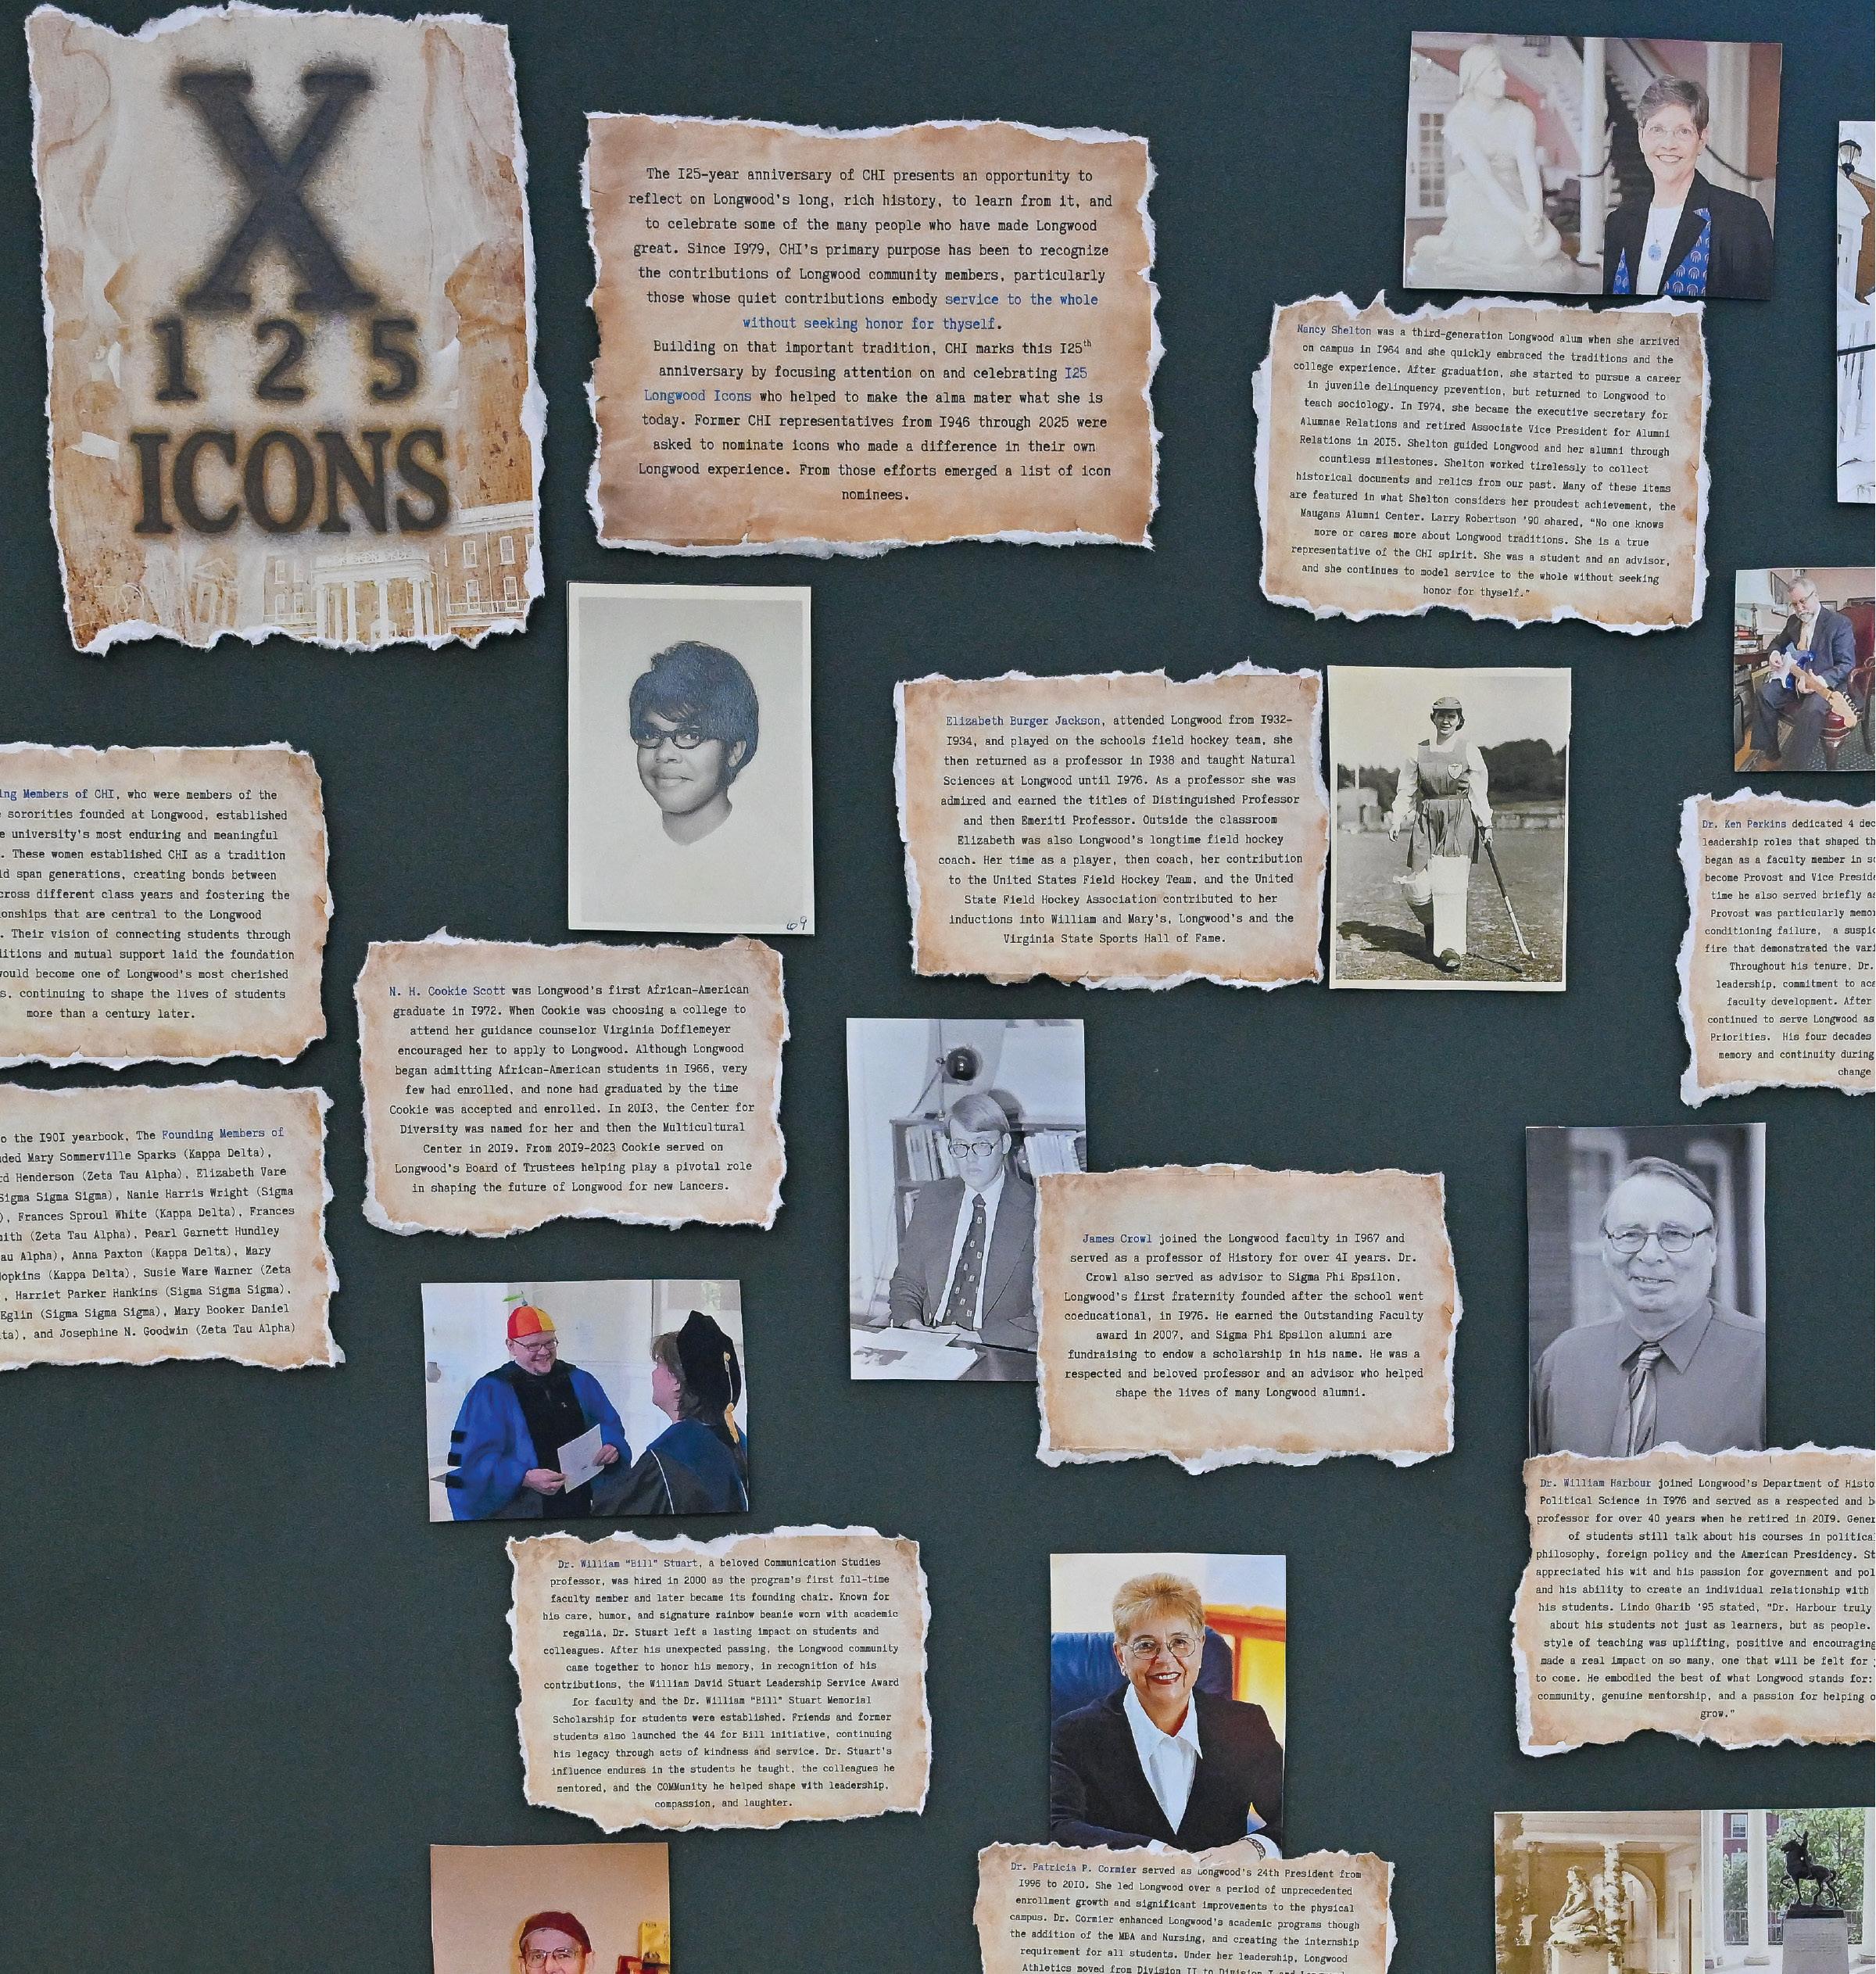 X
125
ICONS
The I25-year anniversary of CHI presents an opportunity to
reflect on Longwood's long, rich history, to learn from it, and
to celebrate some of the many people who have made Longwood
great. Since I979, CHI's primary purpose has been to recognize
the contributions of Longwood community members, particularly
those whose quiet contributions embody service to the whole
without seeking honor for thyself.
Building on that important tradition, CHI marks this I25th
anniversary by focusing attention on and celebrating I25
Longwood Icons who helped to make the alma mater what she is
today. Former CHI representatives from I946 through 2025 were
asked to nominate icons who made a difference in their own
Longwood experience. From those efforts emerged a list of icon
nominees.
Nancy Shelton was a third-generation Longwood alum when she arrived
on campus in I964 and she quickly embraced the traditions and the
college experience. After graduation, she started to pursue a career
in juvenile delinquency prevention, but returned to Longwood to
teach sociology. In I974, she became the executive secretary for
Alumnae Relations and retired Associate Vice President for Alumni
Relations in 20I5. Shelton guided Longwood and her alumni through
countless milestones. Shelton worked tirelessly to collect
historical documents and relics from our past. Many of these items
are featured in what Shelton considers her proudest achievement, the
Maugans Alumni Center. Larry Robertson '90 shared, "No one knows
more or cares more about Longwood traditions. She is a true
representative of the CHI spirit. She was a student and an advisor,
and she continues to model service to the whole without seeking
honor for thyself."
69
Elizabeth Burger Jackson, attended Longwood from I932-
I934, and played on the schools field hockey team, she
then returned as a professor in I938 and taught Natural
Sciences at Longwood until I976. As a professor she was
admired and earned the titles of Distinguished Professor
and then Emeriti Professor. Outside the classroom
Elizabeth was also Longwood's longtime field hockey
coach. Her time as a player, then coach, her contribution
to the United States Field Hockey Team, and the United
State Field Hockey Association contributed to her
inductions into William and Mary's, Longwood's and the
Virginia State Sports Hall of Fame.
ing Members of CHI, who were members of the
sororities founded at Longwood, established
e university's most enduring and meaningful
. These women established CHI as a tradition
ld span generations, creating bonds between
cross different class years and fostering the
ionships that are central to the Longwood
. Their vision of connecting students through
ditions and mutual support laid the foundation
would become one of Longwood's most cherished
s, continuing to shape the lives of students
more than a century later.
Dr. Ken Perkins dedicated 4 dec
leadership roles that shaped th
began as a faculty member in so
become Provost and Vice Preside
time he also served briefly as
Provost was particularly memor
conditioning failure, a suspic
fire that demonstrated the vari
Throughout his tenure, Dr.
leadership, commitment to aca
faculty development. After
continued to serve Longwood as
Priorities. His four decades
memory and continuity during
change
N. H. Cookie Scott was Longwood's first African-American
graduate in I972. When Cookie was choosing a college to
attend her guidance counselor Virginia Dofflemeyer
encouraged her to apply to Longwood. Although Longwood
began admitting African-American students in I966, very
few had enrolled, and none had graduated by the time
Cookie was accepted and enrolled. In 20I3, the Center for
Diversity was named for her and then the Multicultural
Center in 20I9. From 20I9-2023 Cookie served on
Longwood's Board of Trustees helping play a pivotal role
in shaping the future of Longwood for new Lancers.
o the I90I yearbook, The Founding Members of
ded Mary Sommerville Sparks (Kappa Delta),
rd Henderson (Zeta Tau Alpha), Elizabeth Vare
Sigma Sigma Sigma), Nanie Harris Wright (Sigma
), Frances Sproul White (Kappa Delta), Frances
mith (Zeta Tau Alpha), Pearl Garnett Hundley
au Alpha), Anna Paxton (Kappa Delta), Mary
opkins (Kappa Delta), Susie Ware Warner (Zeta
, Harriet Parker Hankins (Sigma Sigma Sigma),
Eglin (Sigma Sigma Sigma), Mary Booker Daniel
ta), and Josephine N. Goodwin (Zeta Tau Alpha)
James Crowl joined the Longwood faculty in I967 and
served as a professor of History for over 4I years. Dr.
Crowl also served as advisor to Sigma Phi Epsilon,
Longwood's first fraternity founded after the school went
coeducational, in I976. He earned the Outstanding Faculty
award in 2007, and Sigma Phi Epsilon alumni are
fundraising to endow a scholarship in his name. He was a
respected and beloved professor and an advisor who helped
shape the lives of many Longwood alumni.
Dr. William Harbour joined Longwood's Department of Histo
Political Science in I976 and served as a respected and b
professor for over 40 years when he retired in 20I9. Gener
of students still talk about his courses in political
philosophy, foreign policy and the American Presidency. St
appreciated his wit and his passion for government and pol
and his ability to create an individual relationship with
his students. Lindo Gharib '95 stated, "Dr. Harbour truly
about his students not just as learners, but as people.
style of teaching was uplifting, positive and encouraging
made a real impact on so many, one that will be felt for
to come. He embodied the best of what Longwood stands for:
community, genuine mentorship, and a passion for helping o
grow."
Dr. William "Bill" Stuart, a beloved Communication Studies
professor, was hired in 2000 as the program's first full-time
faculty member and later became its founding chair. Known for
his care, humor, and signature rainbow beanie worn with academic
regalia, Dr. Stuart left a lasting impact on students and
colleagues. After his unexpected passing, the Longwood community
came together to honor his memory, in recognition of his
contributions, the William David Stuart Leadership Service Award
for faculty and the Dr. William "Bill" Stuart Memorial
Scholarship for students were established. Friends and former
students also launched the 44 for Bill initiative, continuing
his legacy through acts of kindness and service. Dr. Stuart's
influence endures in the students he taught, the colleagues he
mentored, and the COMMunity he helped shape with leadership,
compassion, and laughter.
Dr. Patricia P. Cormier served as Longwood's 24th President from
I996 to 20I0. She led Longwood over a period of unprecedented
enrollment growth and significant improvements to the physical
campus. Dr. Cormier enhanced Longwood's academic programs though
the addition of the MBA and Nursing, and creating the internship
requirement for all students. Under her leadership, Longwood
Athletics moved from Division II to Division I and